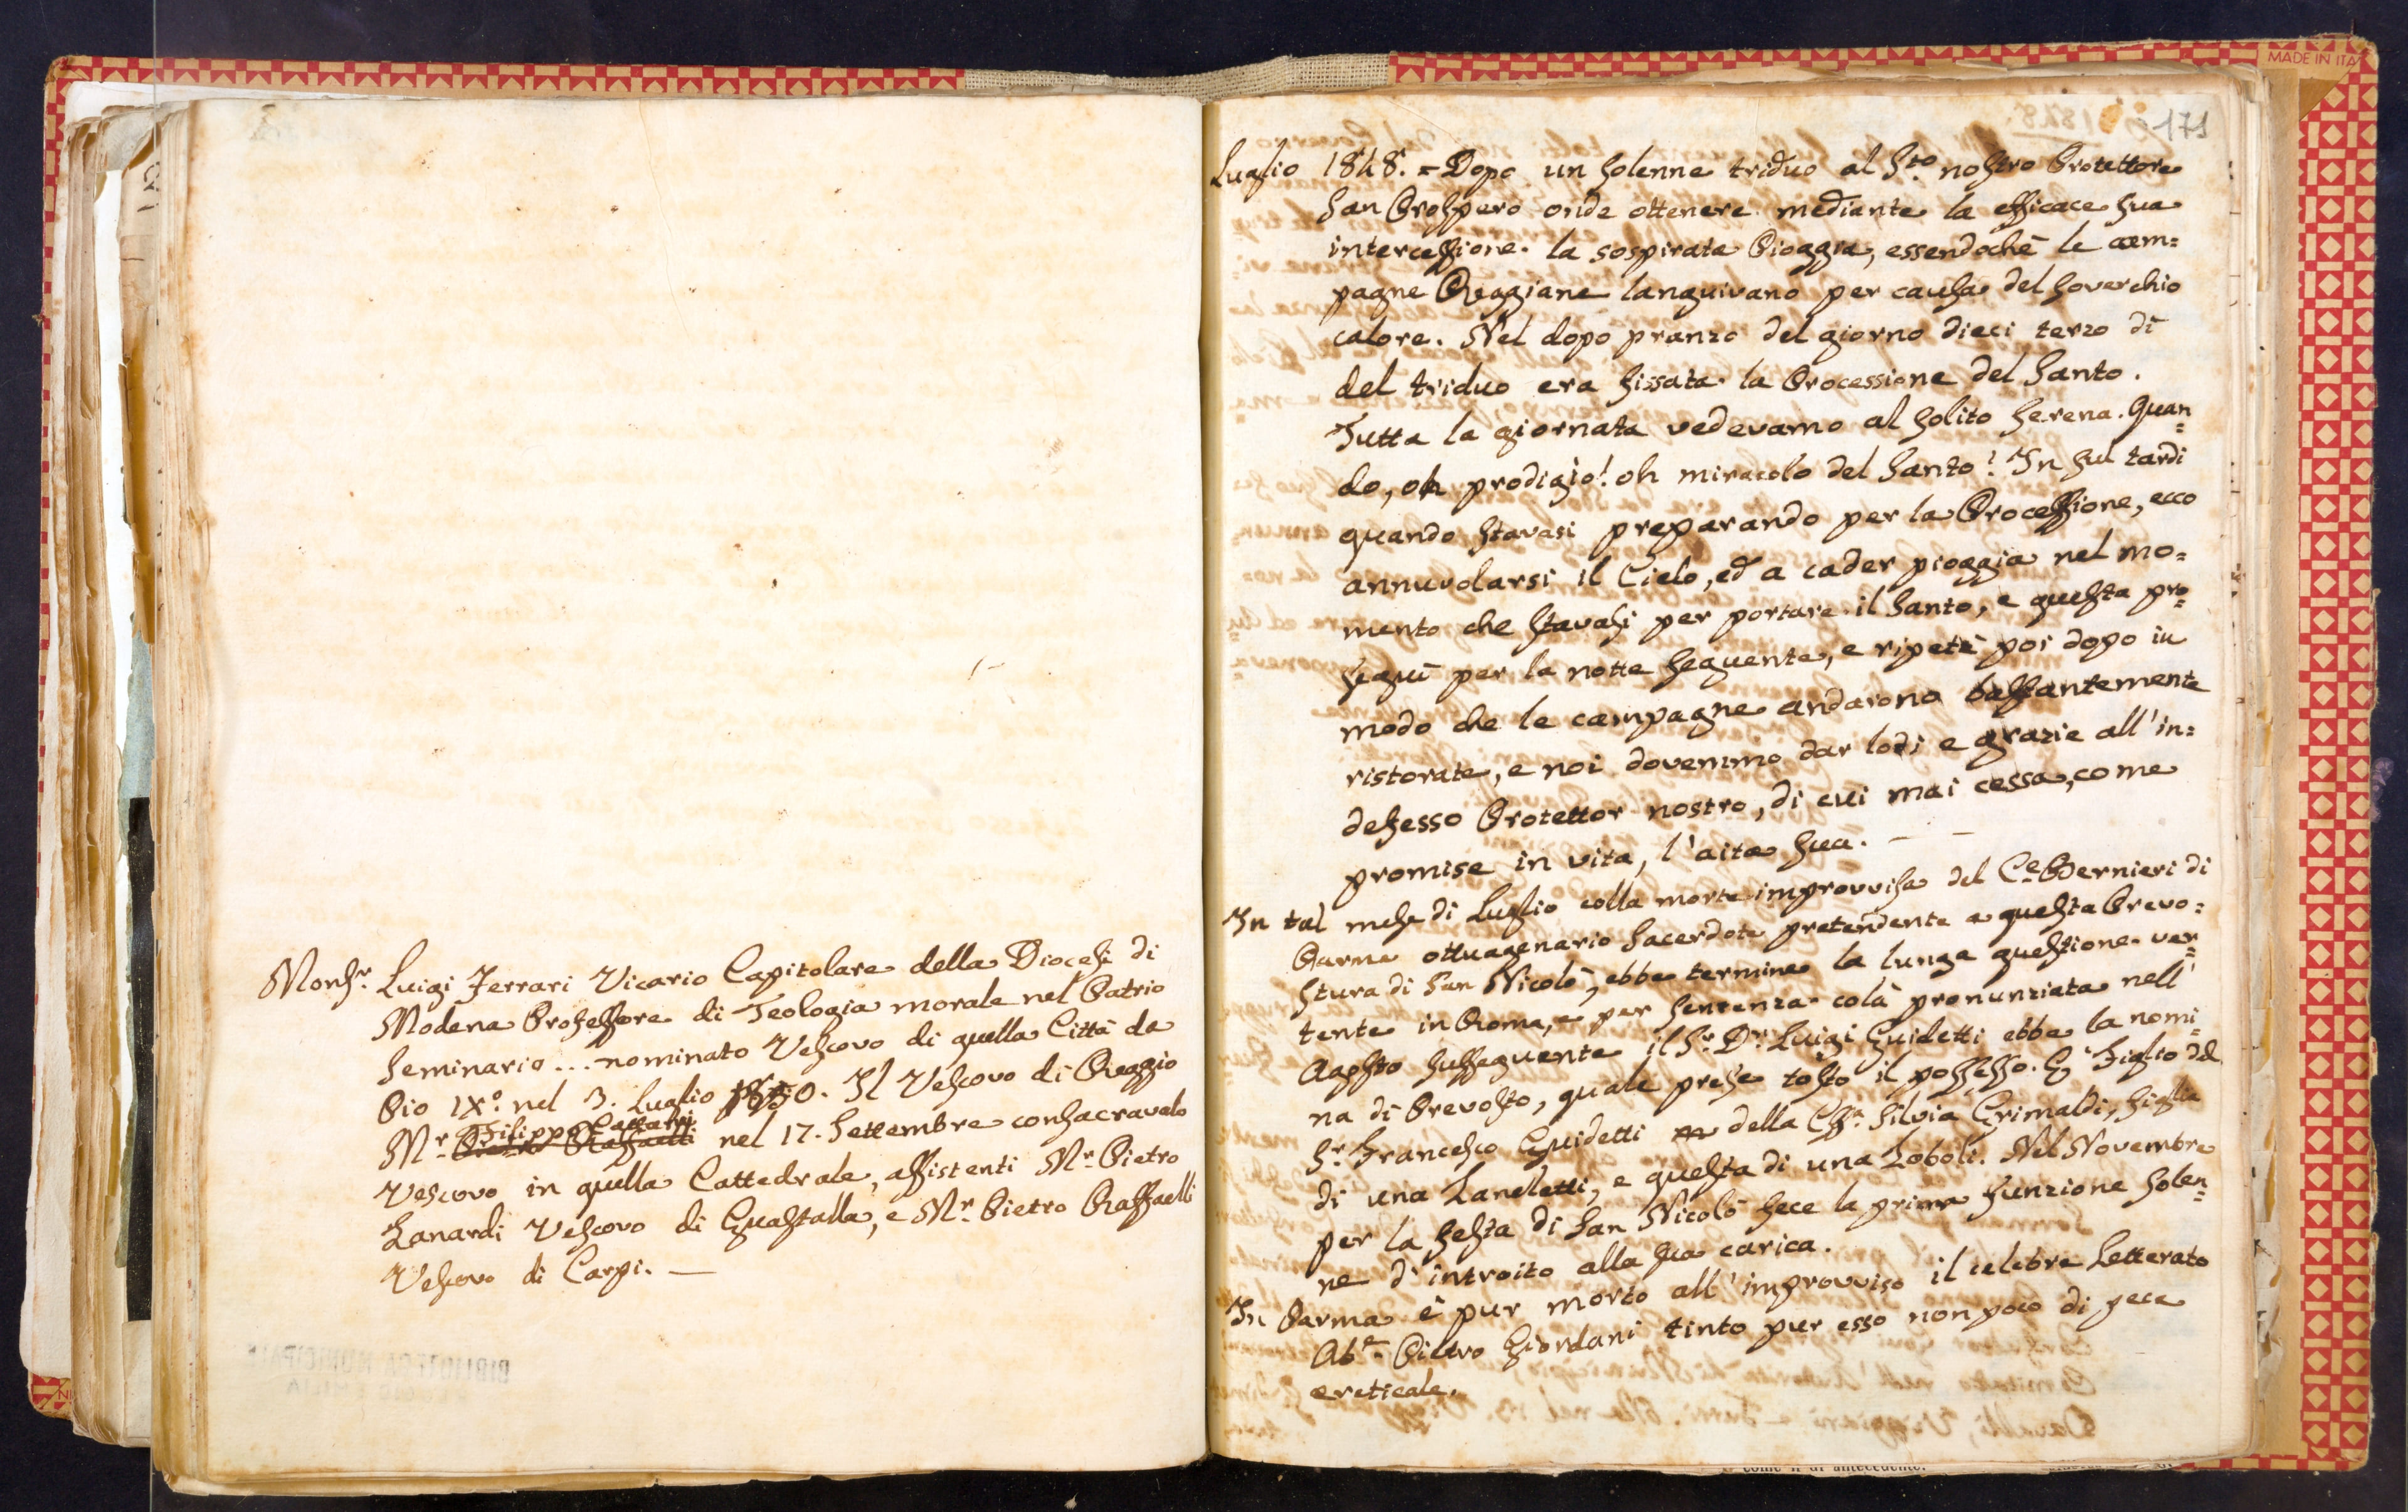 Monsr. Luigi Ferrari Vicario Capitolare della Diocesi di
Modena Professore di Teologia morale nel Patrio
Seminario... nominato Vescovo di quella Città da
Pio IX.° nel 3. Luglio 1850. Il Vescovo di Reggio
Mr. Filippo Cattani nel 17. Settembre consacravalo
Vescovo in quella Cattedrale, assistenti Mr. Pietro
Zanardi Vescovo di Guastalla, e Mr. Pietro Raffaelli
Vescovo di Carpi. —
171
Luglio 1848. = Dopo un solenne triduo al Sto. nostro Protettore
San Prospero onde ottenere mediante la efficace sua
intercessione la sospirata Pioggia, essendochè le cam=
pagne Reggiane languivano per causa del soverchio
calore. Nel dopo pranzo del giorno dieci terzo dì
del triduo era fissata la Processione del Santo.
Tutta la giornata vedevamo al solito serena. Quan=
do, oh prodigio! oh miracolo del Santo! In sul tardi
quando stavasi preparando per la Processione, ecco
annuvolarsi il Cielo, ed a cader pioggia nel mo=
mento che stavasi per portare il Santo, e questa pro=
seguì per la notte seguente, e ripetè poi dopo in
modo che le campagne andarono bastantemente
ristorate, e noi dovemmo dar lodi e grazie all'in=
defesso Protettor nostro, di cui mai cessa, come
promise in vita, l'aita sua. — —
In tal mese di Luglio colla morte improvvisa del Ce. Bernieri di
Parma ottuagenario Sacerdote pretendente a questa Prevo=
stura di San Nicolò, ebbe termine la lunga questione ver=
tente in Roma, e per sentenza colà pronunziata nell'
Agosto susseguente il Sr. Dr. Luigi Guidetti ebbe la nomi=
na di Prevosto, quale prese tosto il possesso. È figlio del
Sr. Francesco Guidetti e della Silvia Grimaldi, figlia
di una Lanelletti, e questa di una Loboli. Nel Novembre
per la festa di San Nicolò fece la prima funzione solen=
ne d'introito alla sua carica.
In Parma è pur morto all'improvviso il celebre Letterato
Abe. Pietro Giordani tinto pur esso non poco di pece
ereticale.
BIBLIOTECA MUNICIPALE
MADE IN ITA